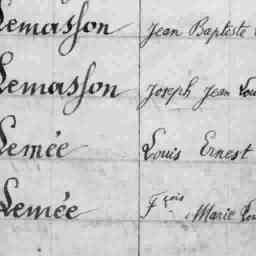 Lemasson Jean Baptiste
Lemasson Joseph Jean Lou
Lemée Louis Ernest
Lemée Fçois Marie Lou